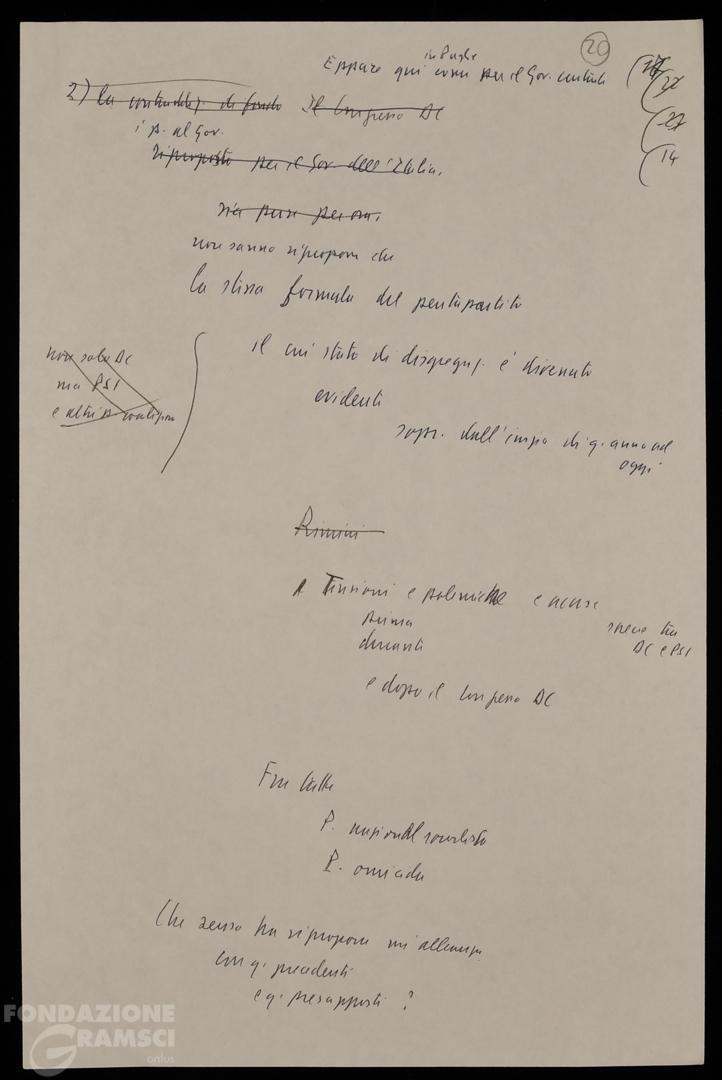 20
in Puglia
Eppure qui come per il Gov. centrale
27
22
27
14
2) la contraddiz. di fondo Il Congresso DC
i p. al Gov.
riproposto per il Gov. dell'Italia.
sia pure per ora.
non sanno riproporre che
la stessa formula del pentapartito
non solo DC
ma PSI
e altri p. coalizione
il cui stato di disgregaz. è divenuto
evidente
sopr. dall'inizio di q. anno ad
oggi
Rimini
Tensioni e polemiche e accuse
prima
durante
specie tra
DC e PSI
e dopo il Congresso DC
Fra l'altro
P. nazionalsocialista
P. omicida
Che senso ha riproporre un'alleanza
con q. precedenti
e q. presupposti ?
FONDAZIONE
GRAMSCI
onlus